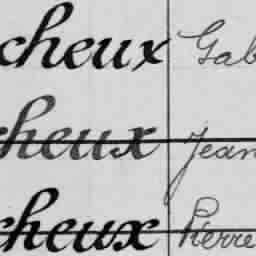 cheux Gab
cheux Jean
cheux Pierre